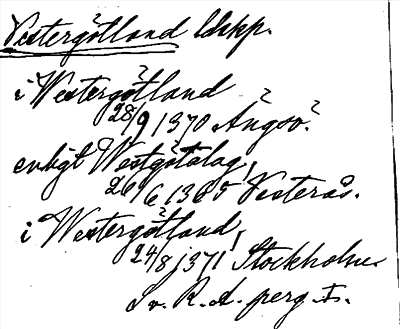 Västergötland ldskp.
i Westergötland
28/9 1370 Ängsö.
enligt Westgötalag,
26/6 1360 Vesterås.
i Westergötland,
24/8 1371 Stockholm.
Sv. R. A. perg.